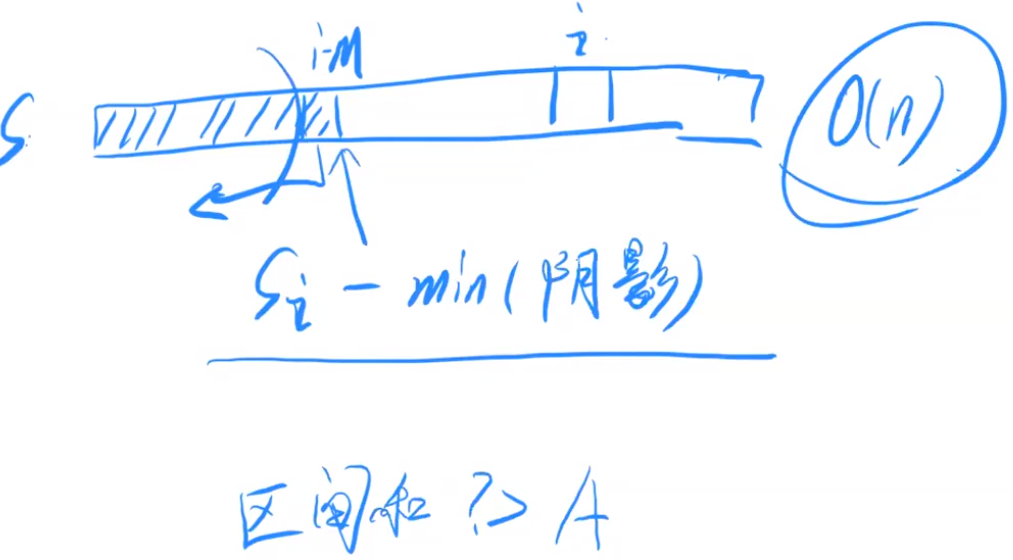 i-M i
S O(n)
Si - min(阴影)
区间和 ?> A